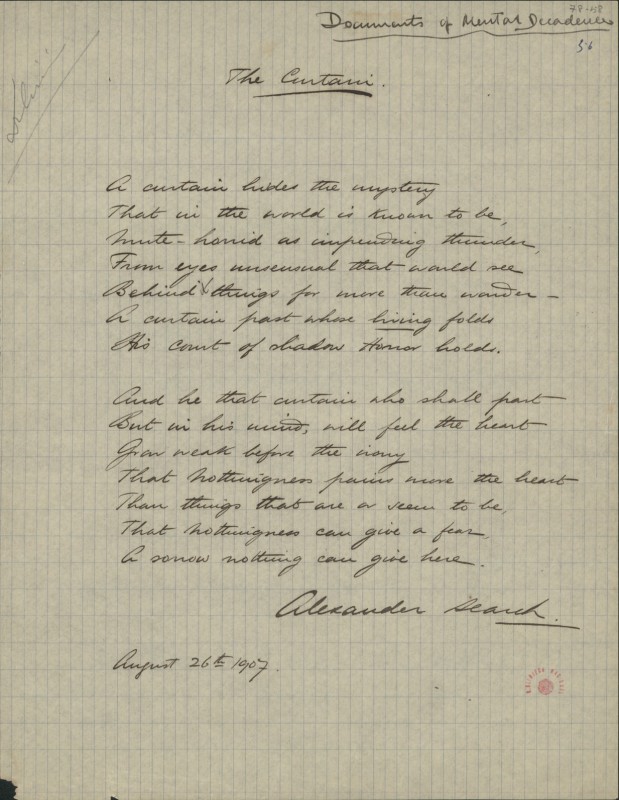 78-58
Documents of Mental Decadence
56
The Curtain.
A curtain hides the mystery
That in the world is known to be,
Mute-horrid as impending thunder,
From eyes unsensual that would see
Behind things for more than wonder –
A curtain past whose living folds
His court of shadow Horror holds.
And he that curtain who shall part
But in his mind, will feel the heart
Grow weak before the irony
That Nothingness pains more the heart
Than things that are or seem to be,
That Nothingness can give a fear,
A sorrow nothing can give here.
Alexander Search.
August 26th 1907.